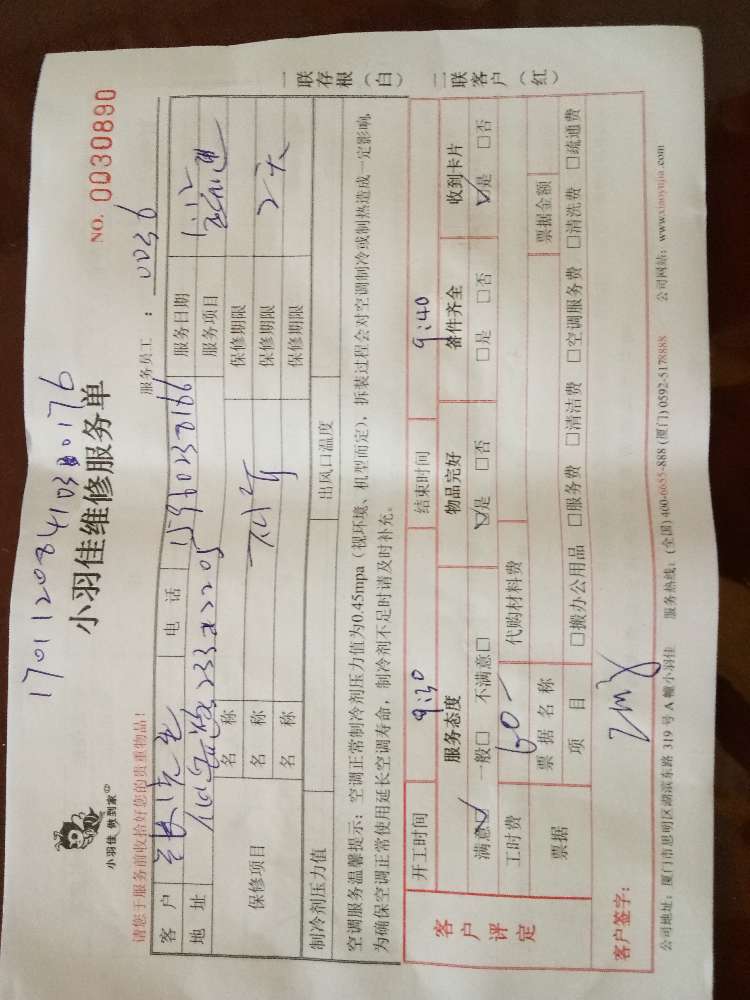 17011208410380176
小羽佳维修服务单
NO. 0030890
小羽佳 做到家
请您于服务前收拾好您的贵重物品!
服务员工: 0036
客户 先生 电话 服务日期 1.12
地址 2205 服务项目
保修项目 名称 保修期限
名称 保修期限 2天
名称 保修期限
制冷剂压力值 出风口温度
空调服务温馨提示:空调正常制冷剂压力值为0.45mpa(视环境、机型而定),拆装过程会对空调制冷或制热造成一定影响,
为确保空调正常使用延长空调寿命,制冷剂不足时请及时补充。
一联存根(白) 二联客户(红)
客户评定
开工时间 9:30 结束时间 9:40
服务态度 物品完好 备件齐全 收到卡片
满意☑ 一般□ 不满意□ ☑是 □否 □是 □否 ☑是 □否
工时费 60- 代购材料费
票据 票据名称 票据金额
项目 □搬办公用品 □服务费 □清洁费 □空调服务费 □清洗费 □疏通费
客户签字:
公司地址:厦门市思明区湖滨东路 319 号 A 幢小羽佳 服务热线:(全国) 400-6655-888 (厦门) 0592-5178888 公司网站:www.xiaoyujia.com